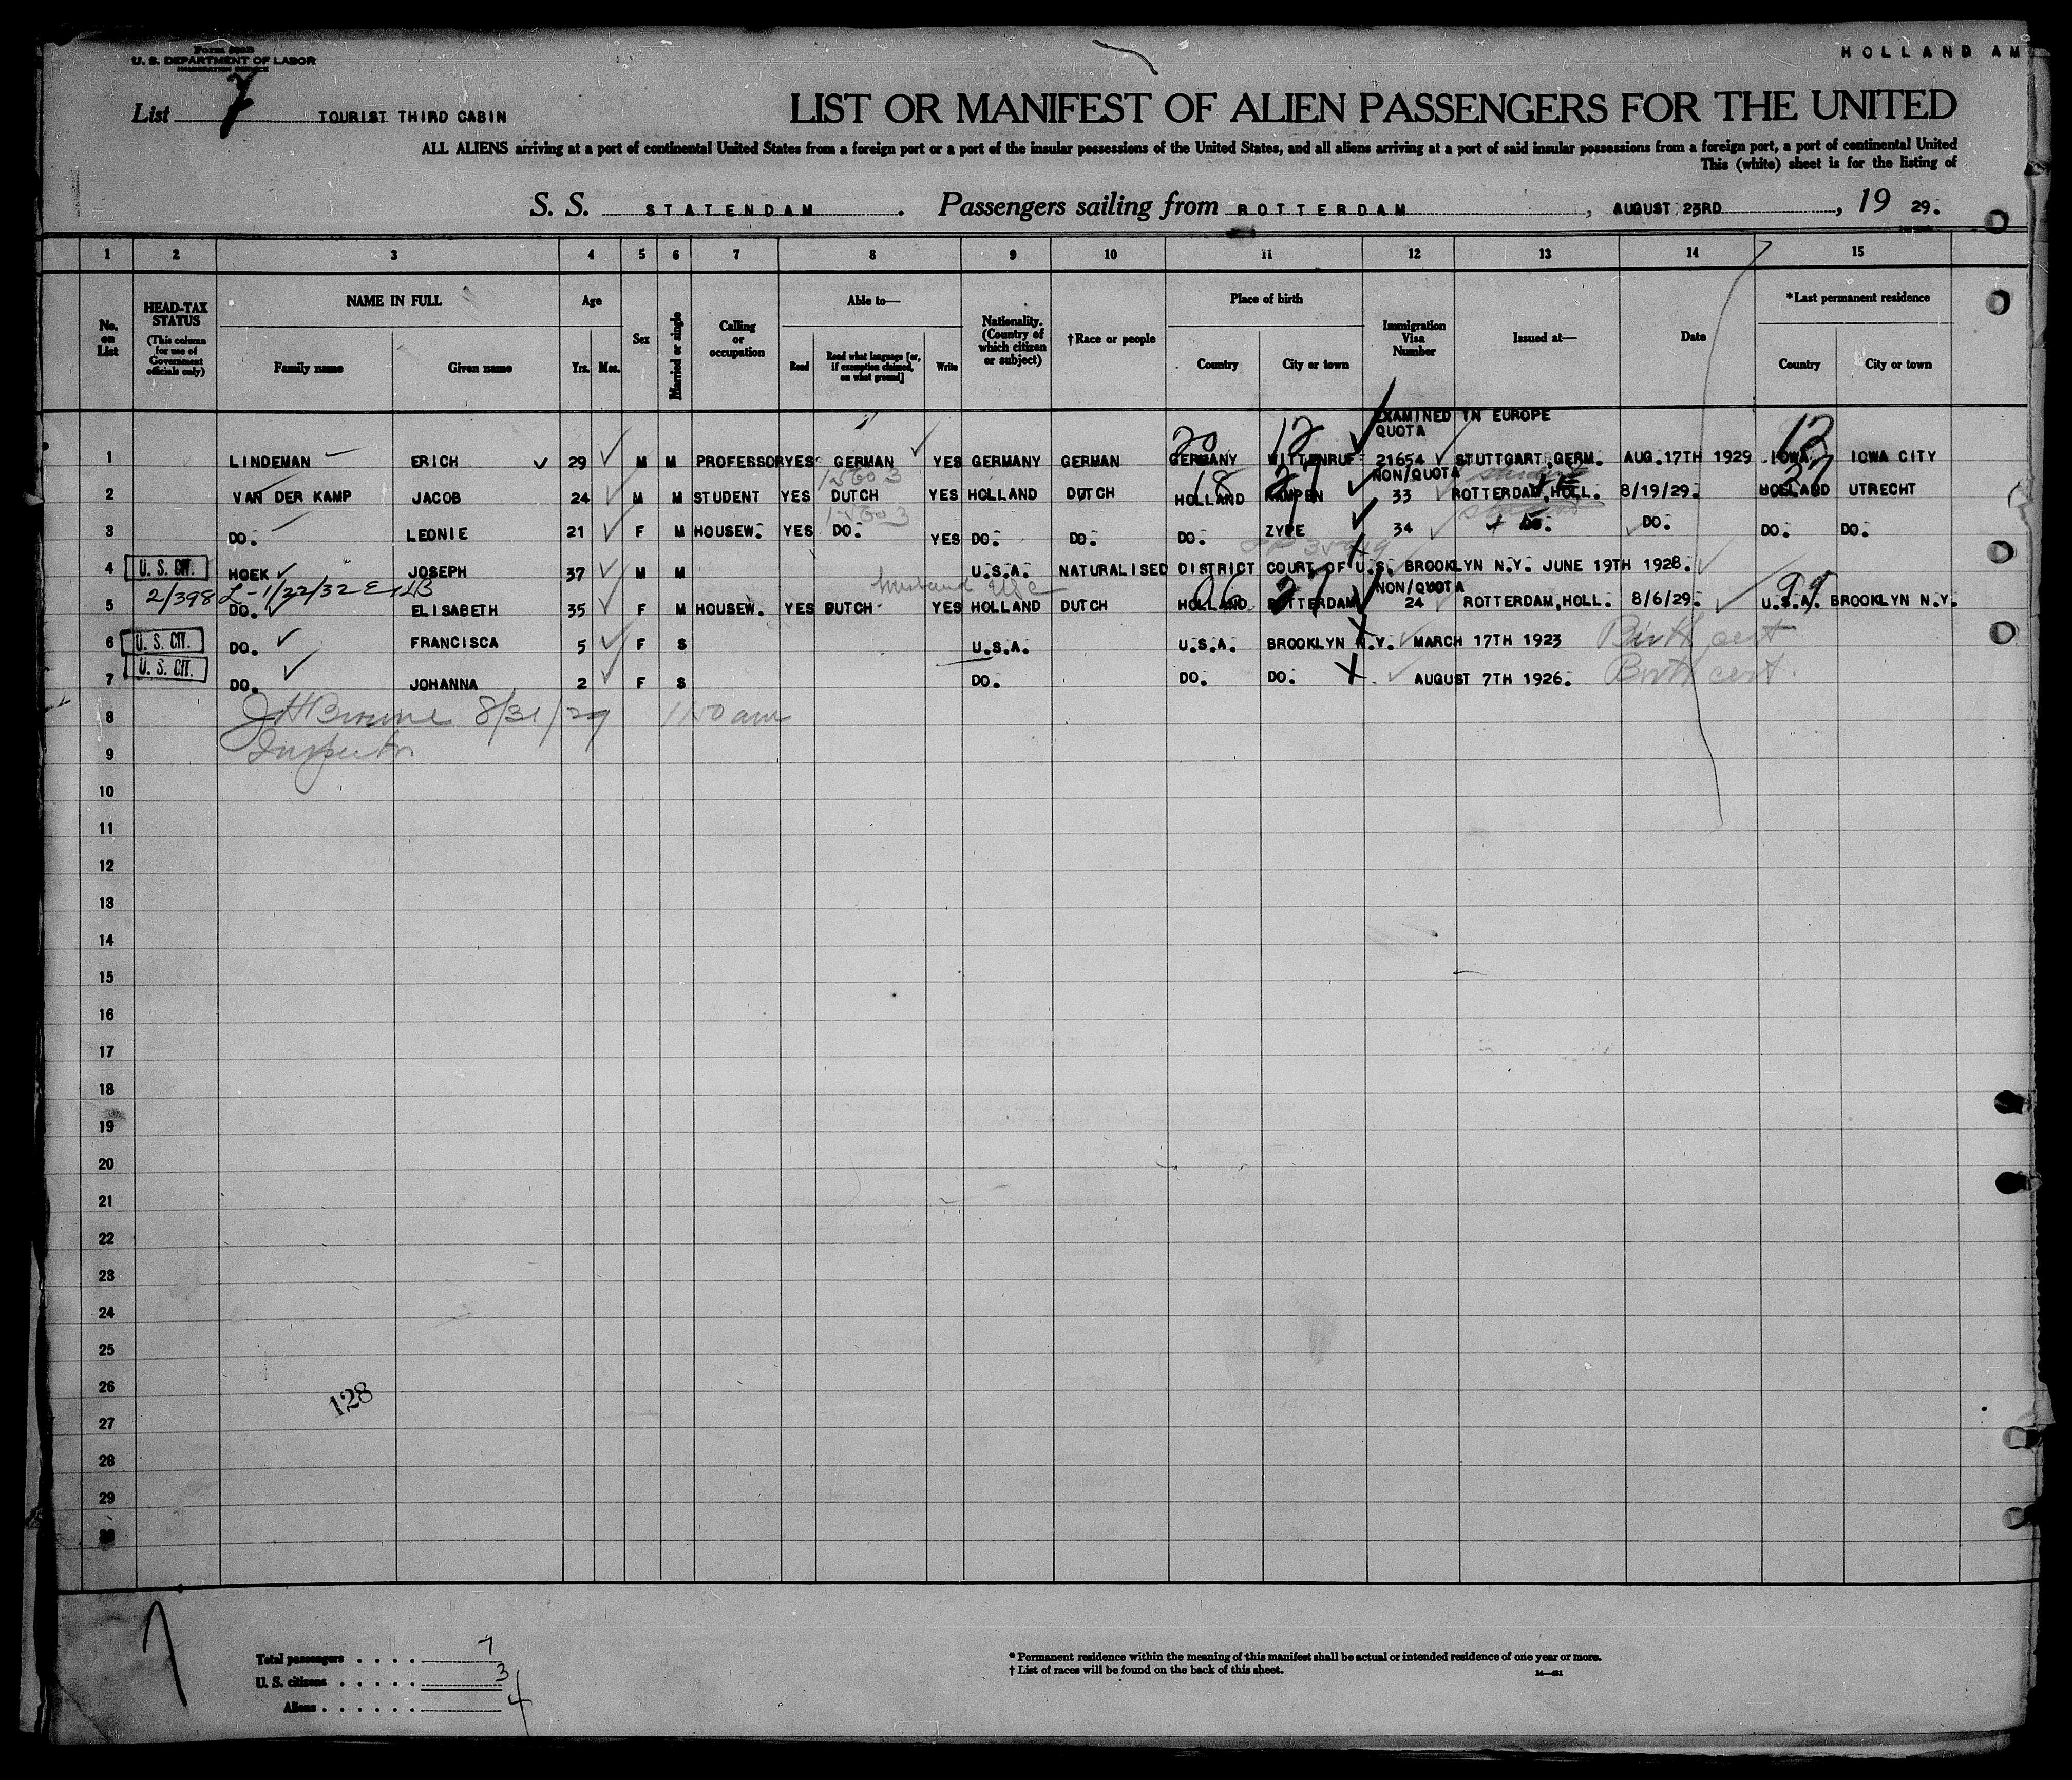 HOLLAND AM
U. S. DEPARTMENT OF LABOR
IMMIGRATION SERVICE
List 7 TOURIST THIRD CABIN
LIST OR MANIFEST OF ALIEN PASSENGERS FOR THE UNITED
ALL ALIENS arriving at a port of continental United States from a foreign port or a port of the insular possessions of the United States, and all aliens arriving at a port of said insular possessions from a foreign port, a port of continental United
This (white) sheet is for the listing of
S. S. STATENDAM . Passengers sailing from ROTTERDAM , AUGUST 23RD , 19 29.
1 2 3 4 5 6 7 8 9 10 11 12 13 14 15
No. on List
HEAD-TAX STATUS
(This column for use of Government officials only)
NAME IN FULL
Family name Given name
Age
Yrs. Mos.
Sex
Married or single
Calling or occupation
Able to—
Read Read what language [or, if exemption claimed, on what ground] Write
Nationality. (Country of which citizen or subject)
†Race or people
Place of birth
Country City or town
Immigration Visa Number
Issued at—
Date
*Last permanent residence
Country City or town
EXAMINED IN EUROPE
20 12 QUOTA 12
1 LINDEMAN ERICH 29 M M PROFESSOR YES GERMAN YES GERMANY GERMAN GERMANY WITTENRUF 21654 STUTTGART, GERM. AUG. 17TH 1929 IOWA, IOWA CITY
18 27 NON/QUOTA 27
2 VAN DER KAMP JACOB 24 M M STUDENT YES DUTCH YES HOLLAND DUTCH HOLLAND KAMPEN 33 ROTTERDAM, HOLL. 8/19/29. HOLLAND UTRECHT
3 DO. LEONIE 21 F M HOUSEW. YES DO. YES DO. DO. DO. ZYPE 34 DO. DO. DO. DO.
4 U. S. CIT. HOEK JOSEPH 37 M M U.S.A. NATURALISED DISTRICT COURT OF U.S. BROOKLYN N.Y. JUNE 19TH 1928.
2/398 husband USC 06 27 NON/QUOTA 99
5 DO. ELISABETH 35 F M HOUSEW. YES DUTCH YES HOLLAND DUTCH HOLLAND ROTTERDAM 24 ROTTERDAM, HOLL. 8/6/29. U.S.A. BROOKLYN N.Y.
6 U. S. CIT. DO. FRANCISCA 5 F S U.S.A. U.S.A. BROOKLYN N.Y. MARCH 17TH 1923 Birth cert
7 U. S. CIT. DO. JOHANNA 2 F S DO. DO. DO. AUGUST 7TH 1926. Birth cert.
8 8/31/29 1150 am
9 Inspector
10
11
12
13
14
15
16
17
18
19
20
21
22
23
24
25
26
128
27
28
29
30
Total passengers . . . . 7
U. S. citizens . . . . . 3
Aliens . . . . . . 4
* Permanent residence within the meaning of this manifest shall be actual or intended residence of one year or more.
† List of races will be found on the back of this sheet.